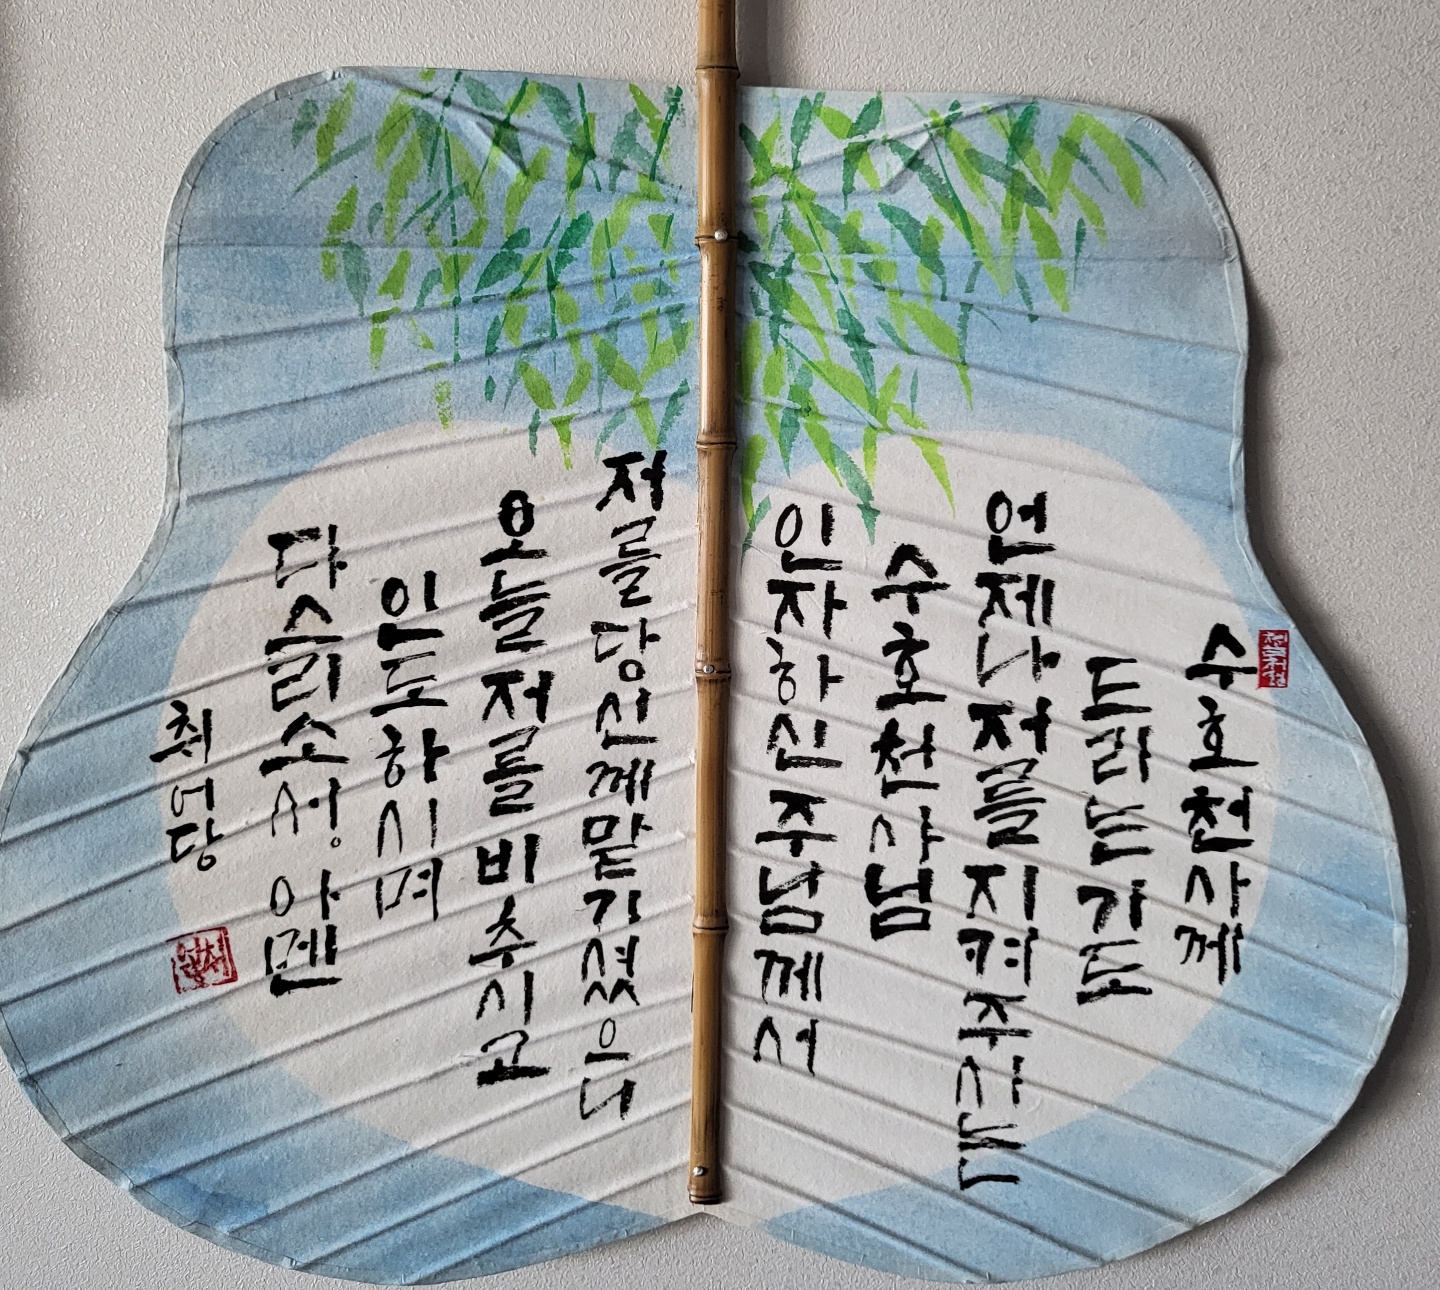 수호천사께
드리는 기도
언제나 저를 지켜주시는
수호천사님
인자하신 주님께서
저를 당신께 맡기셨으니
오늘 저를 비추시고
인도하시며
다스리소서. 아멘